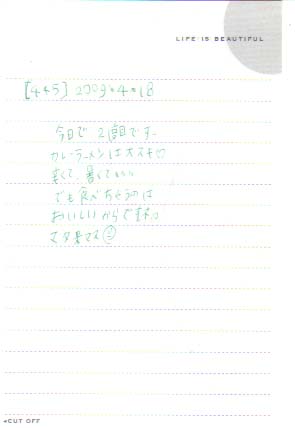 LIFE IS BEAUTIFUL
[445] 2009.4.18
今日で 2週目です
カレーラーメンは大スキ♡
辛くて、暑くていい
でも食べちゃうのは
おいしいからです。
又夕来マス☺
◂CUT OFF